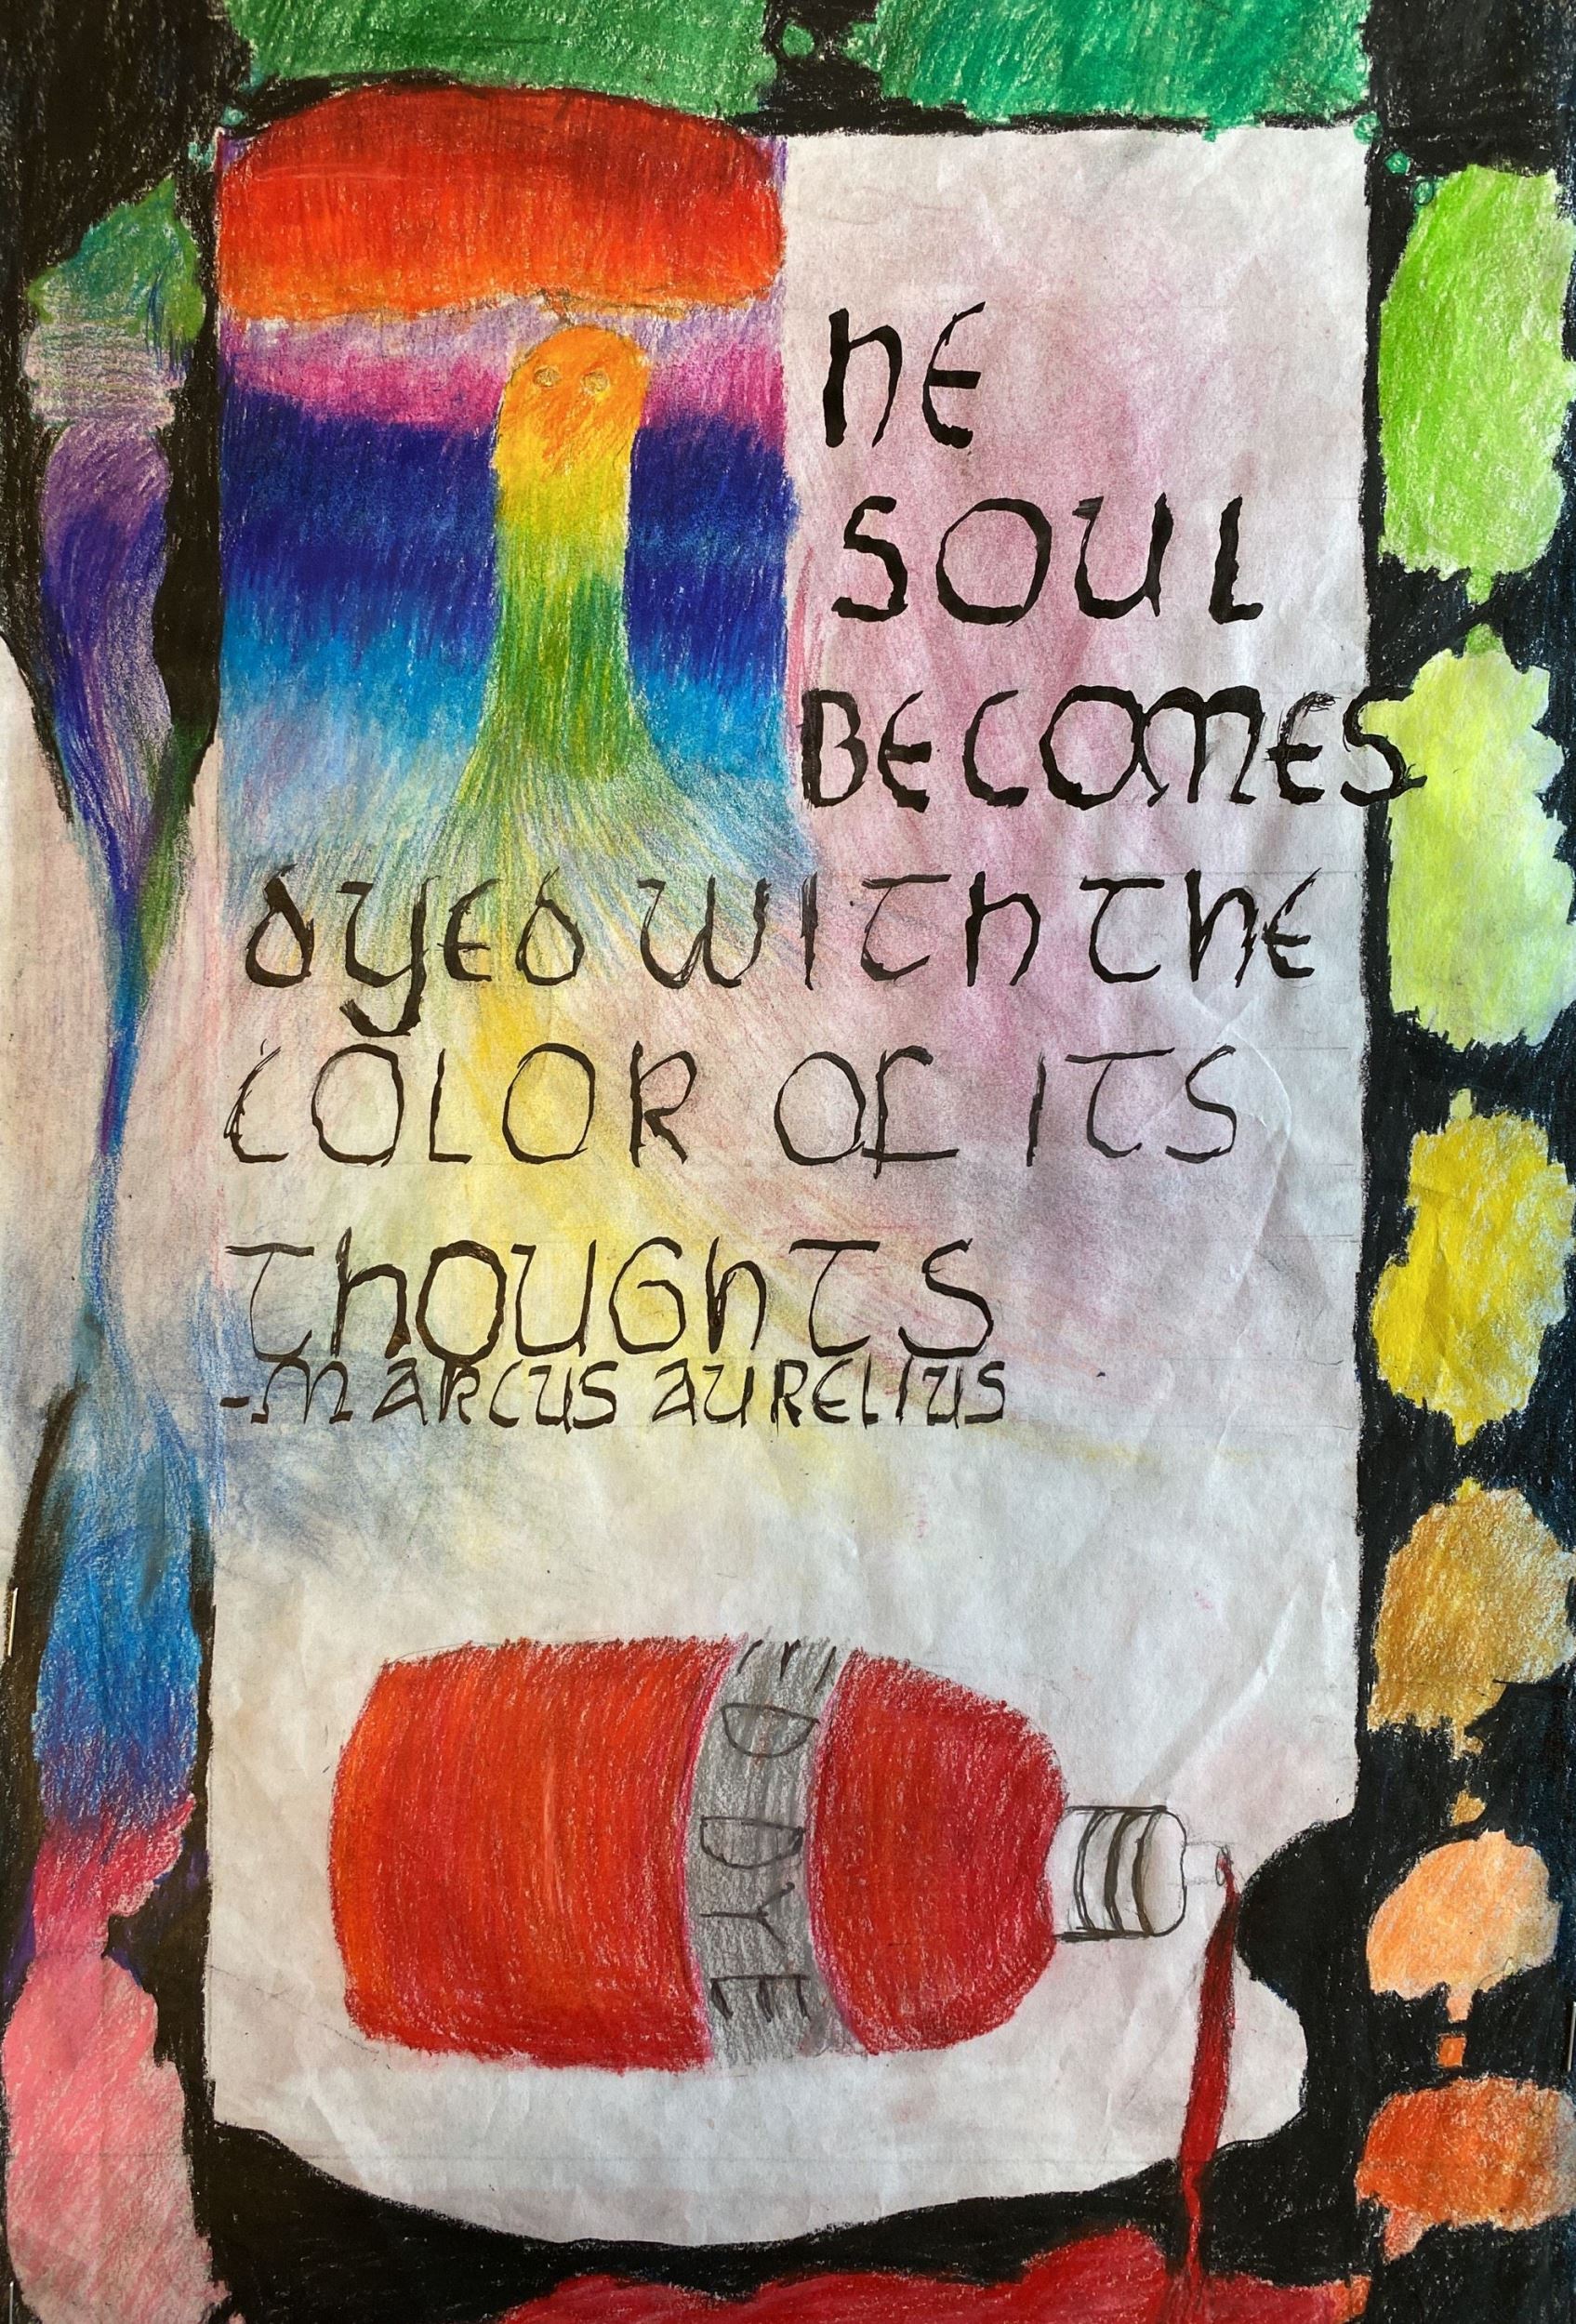 THE
SOUL
BECOMES
DYED WITH THE
COLOR OF ITS
THOUGHTS
-MARCUS AURELIUS
D DYE